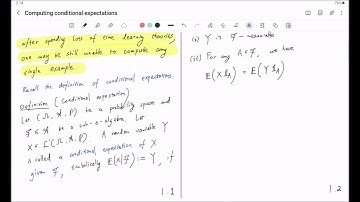 3:14
75%
Computing conditional expectations
after spending lots of time learning theories
one may be still unable to compute any
single example
Recall the definition of conditional expectations.
Definition (Conditional expectation)
Let (Ω, A, P) be a probability space and
F ⊆ A be a sub-σ-algebra. Let
X ∈ L¹(Ω, A, P). A random variable Y
is called a conditional expectation of X
given F, symbolically E(X|F) := Y, if
1.1
(i) Y is F-measurable
(ii) For any A ∈ F, we have
E(X 1_A) = E(Y 1_A)
1.2